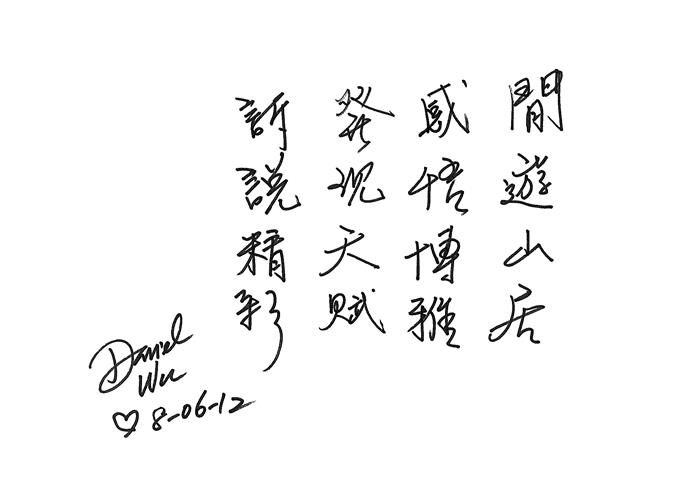 閒遊山居
感悟博雅
發現天賦
訴説精彩
Daniel
Wu
♡ 8-06-12